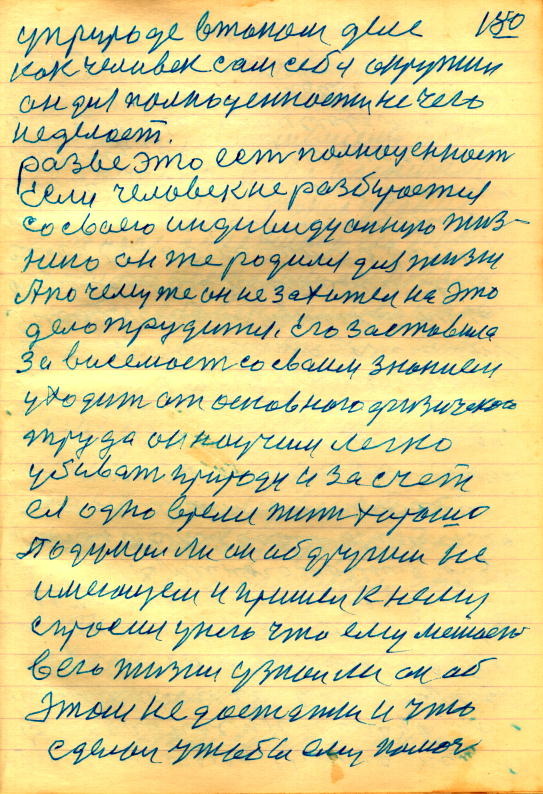 у природе втаком деле 150
как человек сам себя окружил
он для полноценности нечего
неделает.
разве это есть полноценност
Если человек не разбирается
сосвоею индивидуальную жиз-
нию он же родился для жизни
А почему же он не захотел на это
дело трудится. Его заставила
Зависемост сосвоим знанием
уходит от основного физического
труда он научил легко
убиват природу и за счет
ея одно время жит хорошо
Подумал ли он об другим не
имеющем и пришел к нему
спросил унего что ему мешает
вего жизни узнал ли он об
этом недостатки и что
сделал чтобы ему помоч